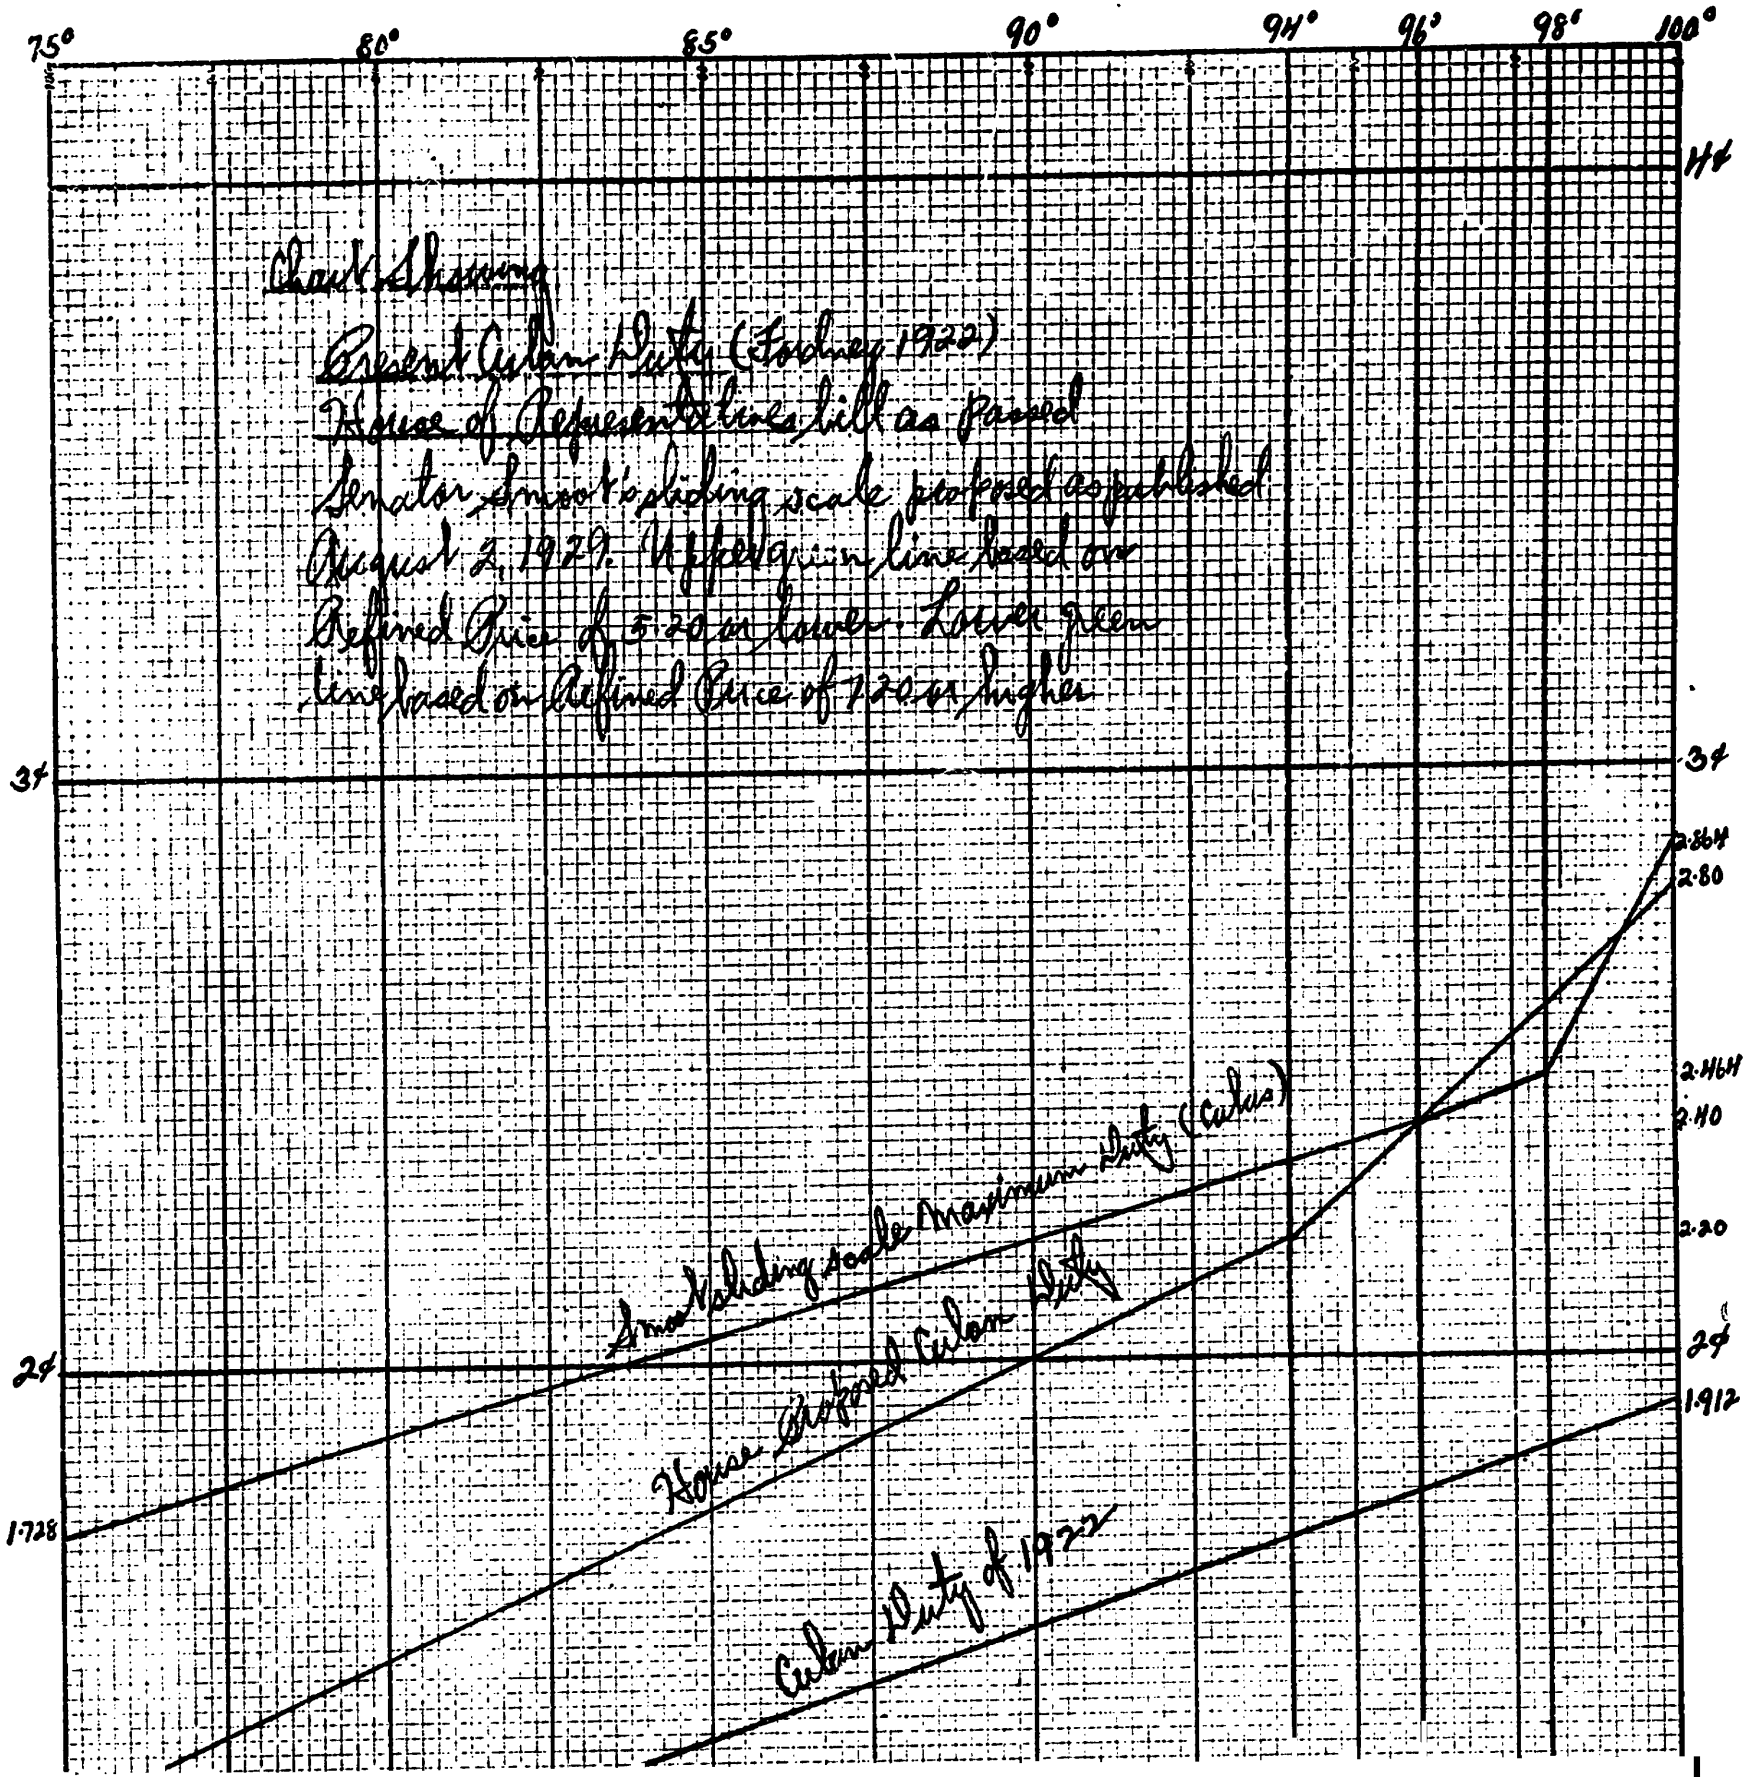 75° 80° 85° 90° 94° 96° 98° 100°
4¢
Chart Showing
Present Cuban Duty (Fordney 1922)
House of Representatives bill as passed
Senator Smoot's sliding scale proposed as published
August 2, 1929. Upper green line based on
Refined Price of 5.20 or lower. Lower green
line based on Refined Price of 7.20 or higher
3¢ 3¢
2.864
2.80
2.464
2.40
Smoot sliding scale Maximum Duty (Cubas)
2.20
House Proposed Cuban Duty
2¢ 2¢
1.912
1.728
Cuban Duty of 1922